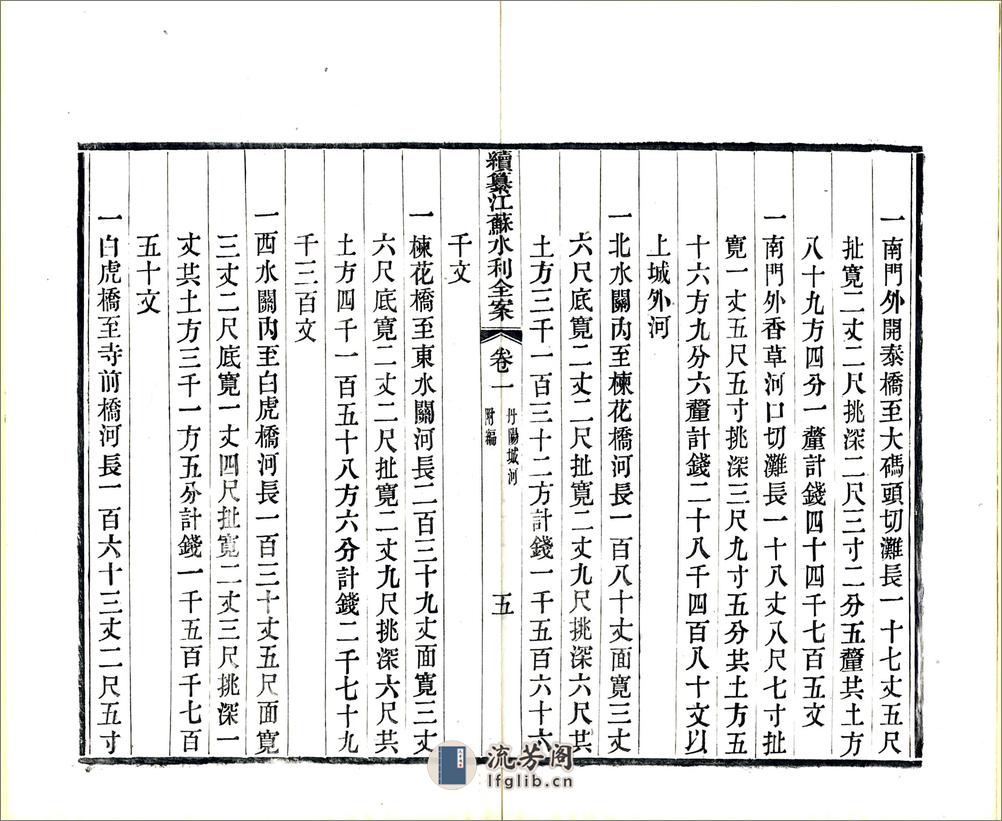 一南門外開泰橋至大碼頭切灘長一十七丈五尺
扯寬二丈二尺挑深二尺三寸二分五釐共土方
八十九方四分一釐計錢四十四千七百五文
一南門外香草河口切灘長一十八丈八尺七寸扯
寬一丈五尺五寸挑深三尺九寸五分共土方五
十六方九分六釐計錢二十八千四百八十文以
上城外河
一北水關內至楝花橋河長一百八十丈面寬三丈
六尺底寬二丈二尺扯寬二丈九尺挑深六尺共
土方三千一百三十二方計錢一千五百六十六
千文
續纂江蘇水利全案
卷一
丹陽城河
附編
五
一楝花橋至東水關河長二百三十九丈面寬三丈
六尺底寬二丈二尺扯寬二丈九尺挑深六尺共
土方四千一百五十八方六分計錢二千七十九
千三百文
一西水關內至白虎橋河長一百三十丈五尺面寬
三丈二尺底寬一丈四尺扯寬二丈三尺挑深一
丈共土方三千一方五分計錢一千五百千七百
五十文
一白虎橋至寺前橋河長一百六十三丈二尺五寸
流芳阁
lfglib.cn